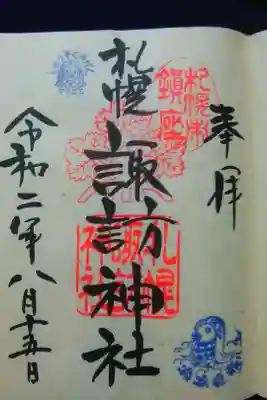 奉拝
札幌市
鎮座
札幌諏訪神社
札幌
諏訪
神社
令和二年八月十五日